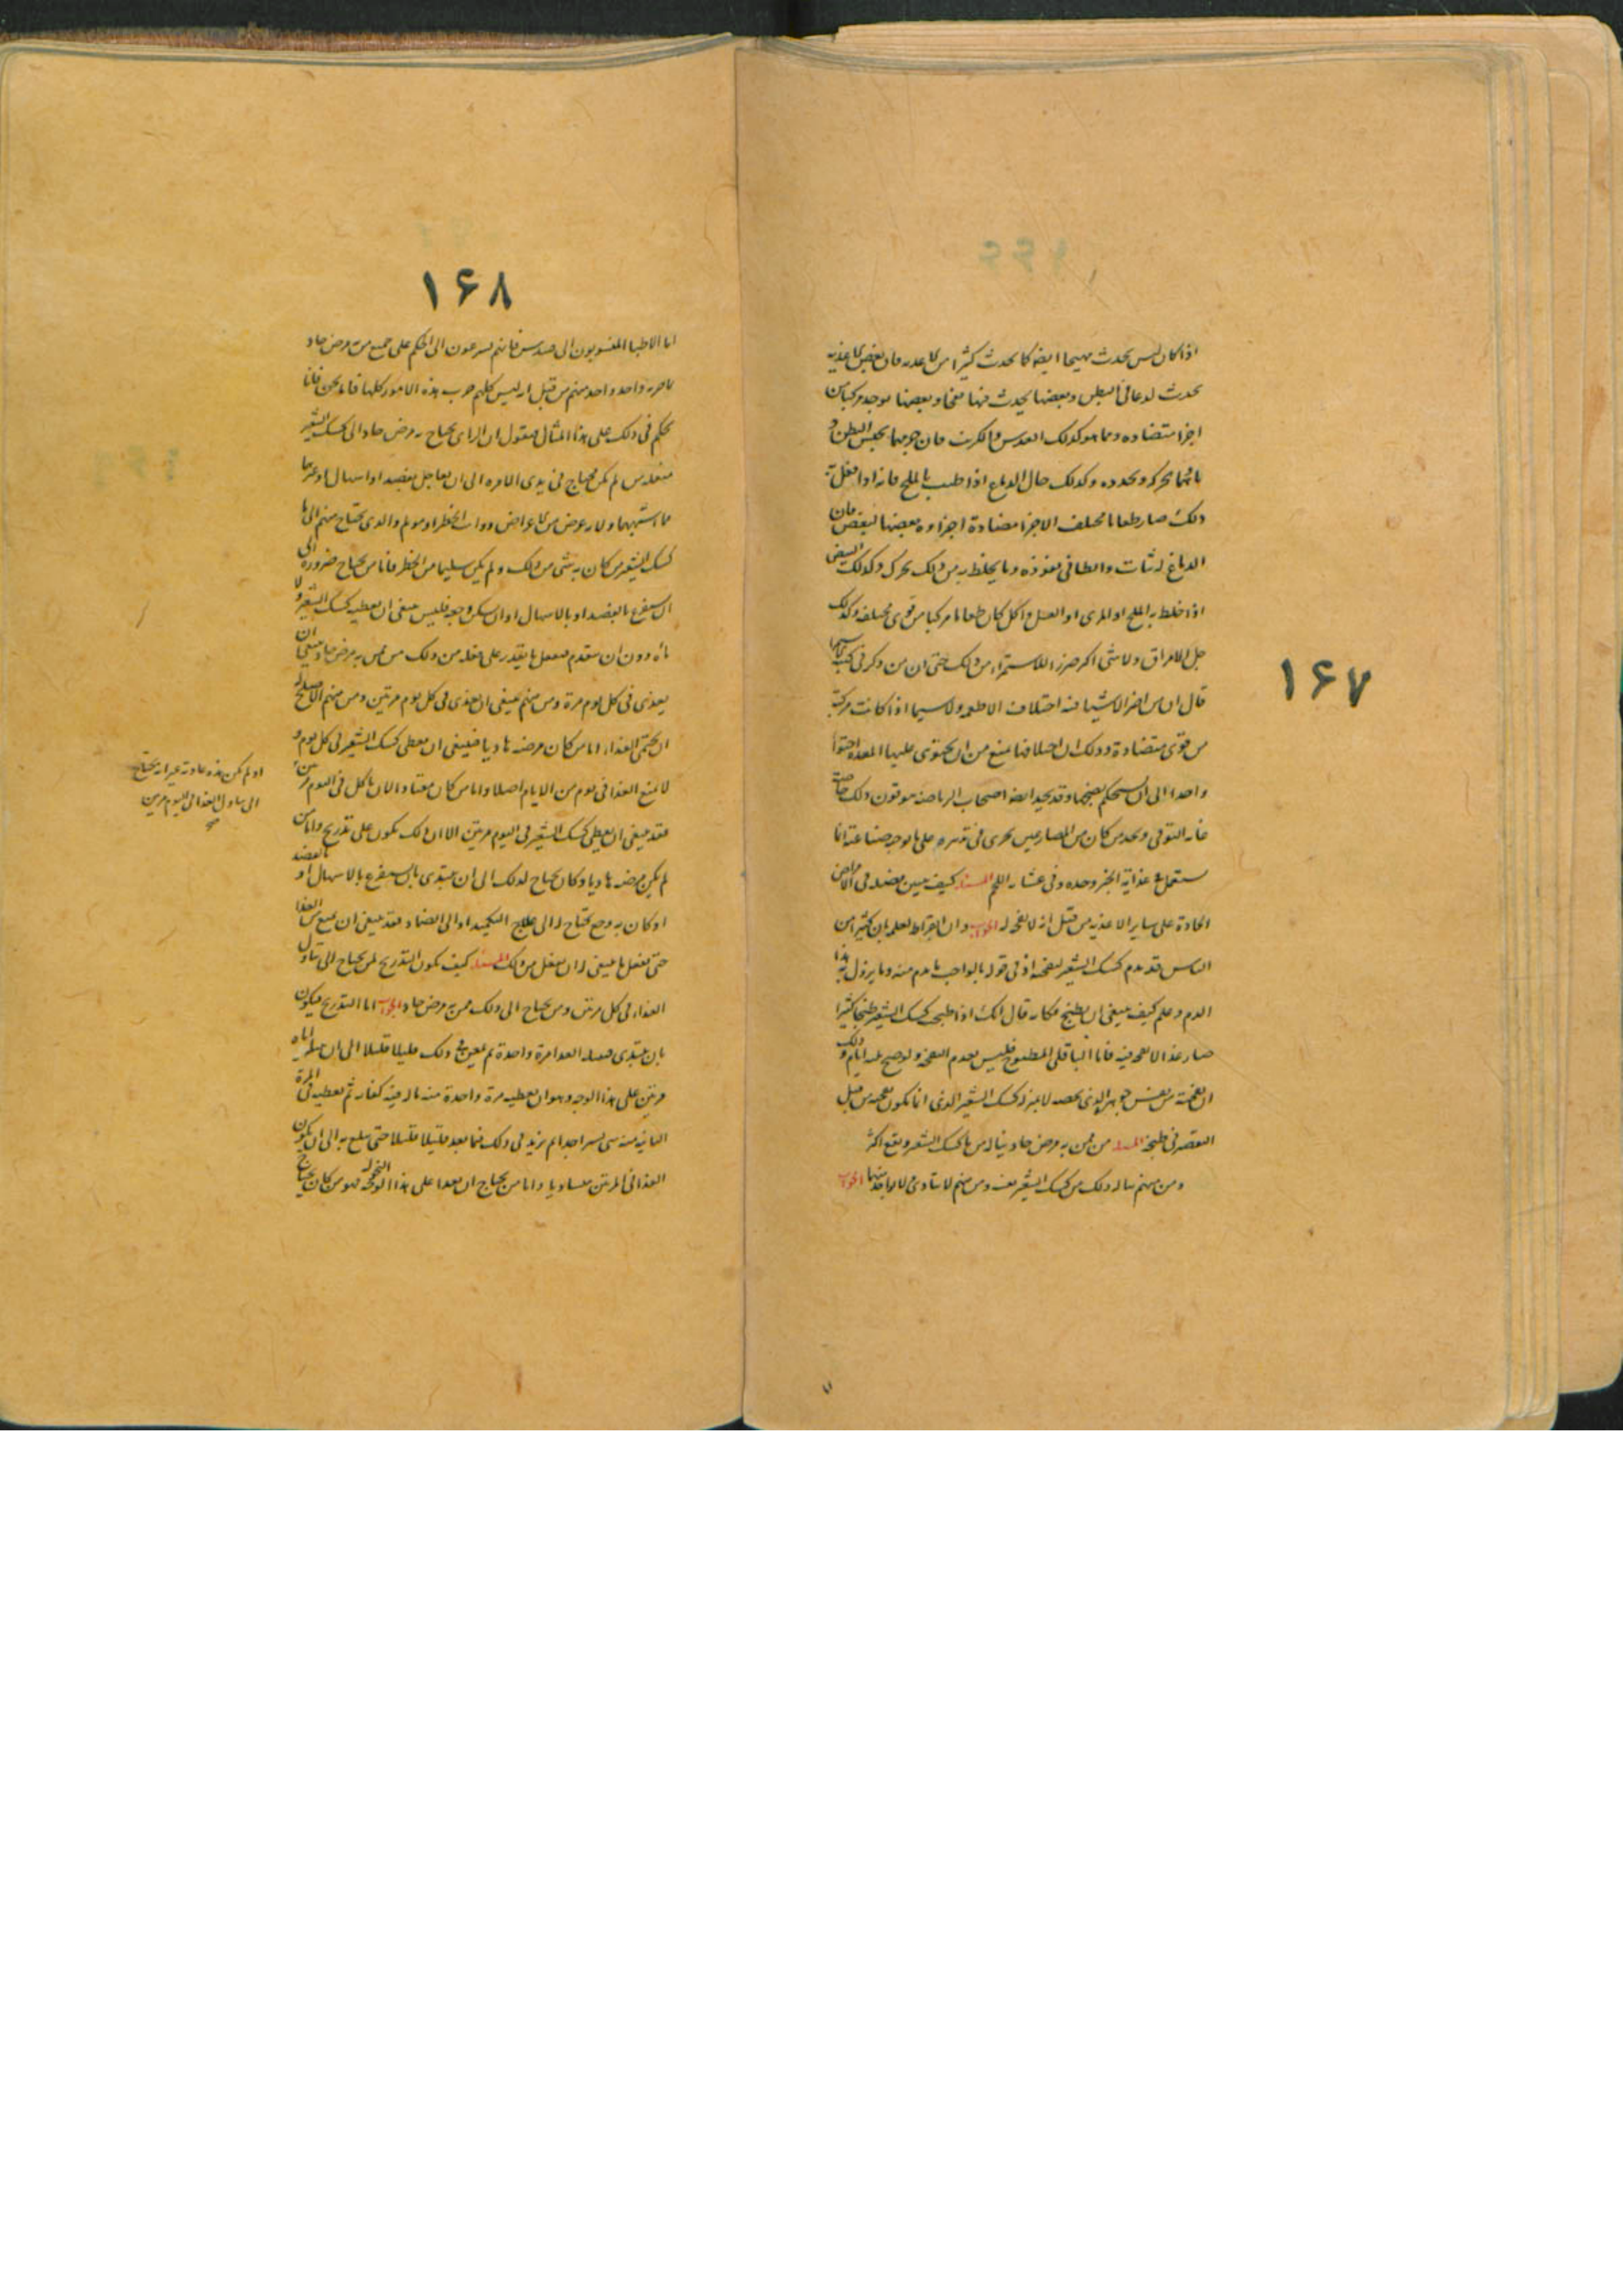 ۱۶۷
اذا كان ليس يحدث تهيجا ايضا كما يحدث كثيرا من الاغذيه فان بعض الاغذيه
يحدث لدعا فى البطن وبعضها يحدث فيها نفخا وبعضها يوجد مركبا من
اجزا متضاده ومما هو كذلك العدس والكرنب فان جرمهما يحبس البطن و
ماؤهما يحركه ويحدره وكذلك حال الدماغ اذا طيب بالملح فانه اذا فعل به
ذلك صار طعاما مختلف الاجزا مضادة اجزاوه بعضها لبعض فان
الدماغ له ثبات وابطا فى نفوذه وما يخلط به من ذلك يحرك وكذلك البيض
اذا خلط به الملح او المرى او العسل واكل كان طعاما مركبا من قوى مختلفه وكذلك
جل الامراق ولا شى اكثر ضررا للاستمراء من ذلك حتى ان من ذكر فى كتب
قال ان من اضر الاشيا فيه اختلاف الاطعمه ولا سيما اذا كانت مركبة
من قوى متضادة وذلك ان اختلافها يمنع من ان يحتوى عليها المعدة احتوا
واحدا الى ان يستحكم نضجها وقد نجد ايضا اصحاب الرياضه يتوقون ذلك
غايه التوقى ونجد من كان من المصارعين يجرى فى تدبيره على ما توجبه صناعته انما
يستعمل فى غذايه الخبز وحده وفى عشايه اللحم المسئله كيف يتبين فضله فى الامراض
الحادة على ساير الاغذيه من قبل انه لا نفخه له الجواب ان ابقراط لعلمه بان كثيرا من
الناس قد يذم كشك الشعير لنفخه اذنى قوله بالواجب ما ذم منه وما يزول به هذا
الذم وعلم كيف ينبغى ان يطبخ فكانه قال انك اذا طبخت كشك الشعير طبخا كثيرا
صار غذا لا نفخ فيه فاما الباقلى المطبوخ فليس يعدم النفخه ولو طبخ عدة ايام وذلك
ان نفخته من نفس جوهره الذى يخصه لا بمنزلة كشك الشعير الذى انما يكون نفخه من قبل
التقصير فى طبخه المسئله من ممن به مرض حاد يناله من ماء كشك الشعير ونفع اكثر
ومن منهم يناله ذلك من كشك الشعير نفسه ومن منهم لا يتناول ولا واحد منهما الجواب
۱۶۸
اما الاطبا المنسوبون الى قنيدس فانهم يسرعون الى الحكم على جميع من به مرض حاد
واحد واحد منهم من قبل انه ليس كلهم جرب هذه الامور كلها فاما نحن فانا
نحكم فى ذلك على هذا المثال فنقول ان الذى يحتاج به مرض حاد الى كشك الشعير
من لم يكن محتاج فى بدى الامر الى ان يعاجل بفصد او اسهال او غيرهما
مما اشبههما ولا به عرض من الاعراض ذوات الخطر او مولم والذى يحتاج منهم الى ماء
كشك الشعير من كان به شى من ذلك ولم يكن سليما من الخطر فاما من يحتاج ضروره الى
ان يستفرغ بالفصد او بالاسهال او ان يسكن وجعه فليس ينبغى ان يعطيه كشك الشعير ولا
ماءه دون ان يتقدم فيفعل ما يقدر على فعله من ذلك من ممن به مرض حاد ينبغى ان
يغذى فى كل يوم مرة ومن منهم ينبغى ان يغذى فى كل يوم مرتين ومن منهم الاصلح له
ان يحتمى الغذاء اما من كان مرضه هاديا فينبغى ان يعطى كشك الشعير فى كل يوم و
لا يمنع الغذا فى يوم من الايام اصلا واما من كان معتاد الان ياكل فى اليوم مرتين
فقد ينبغى ان يعطى كشك الشعير فى اليوم مرتين الا ان ذلك يكون على تدريج واما من
لم يكن مرضه هاديا وكان يحتاج لذلك الى ان يبتدى بان يستفرغ بالاسهال او بالفصد
او كان به وجع يحتاج له الى علاج التكميد او الى الضماد فقد ينبغى ان يمنع من الغذا
حتى يفعل ما ينبغى له ان يفعل من ذلك المسئله كيف يكون التدريج لمن يحتاج الى تناول
الغذاء فى كل مرتين ومن يحتاج الى ذلك ممن به مرض حاد الجواب اما التدريج فيكون
بان يبتدى فيعطيه الغذا مرة واحدة ثم يعوده ذلك قليلا قليلا الى ان يعطيه اياه
مرتين على هذا الوجه وهو ان يعطيه مرة واحدة منه ما له فيه كفايه ثم يعطيه فى المرة
الثانيه منه شى يسير جدا ثم يزيد فى ذلك فيما بعد قليلا قليلا حتى يبلغ به الى ان يكون
الغذا فى المرتين متساويا واما من يحتاج ان يغذا على هذا الوجه فهو من كان يحتاج
او لم تكن هذه عادته غير انه يحتاج
الى تناول الغذا فى اليوم مرتين
صح